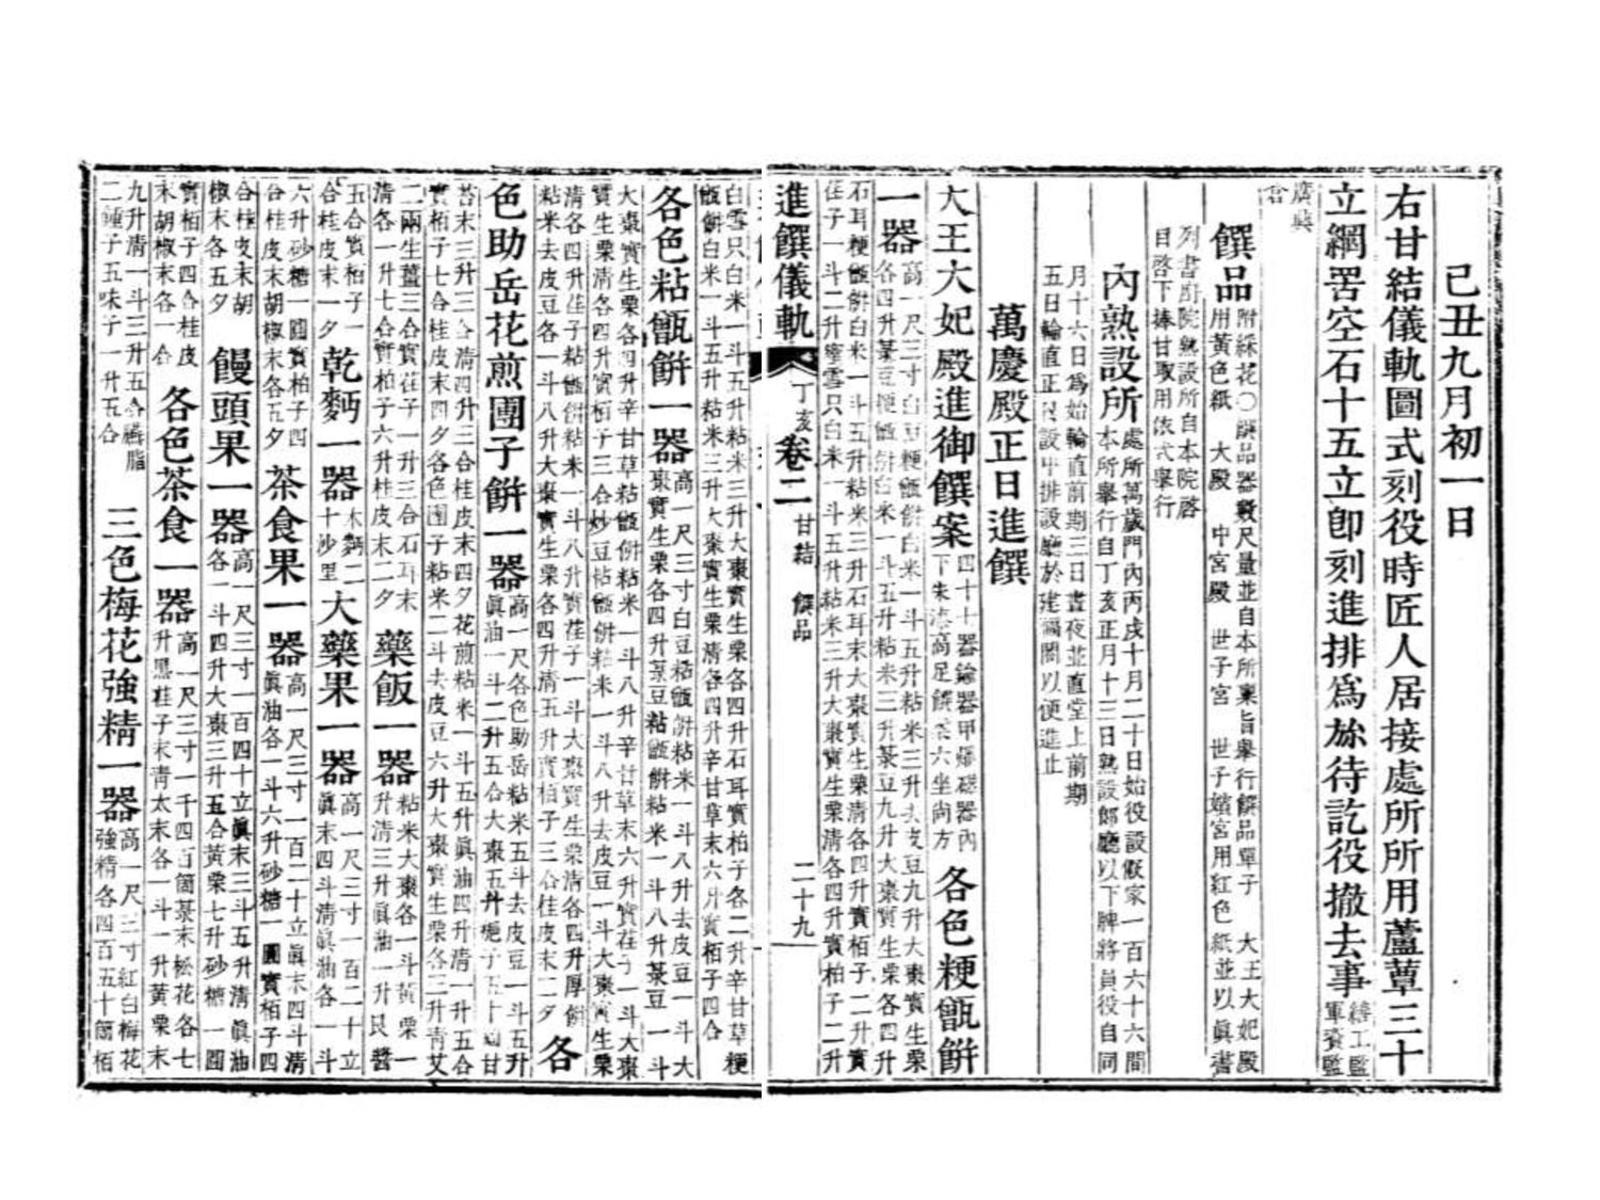 己丑九月初一日
右甘結儀軌圖式刻役時匠人居接處所所用蘆蕈三十
立網罟空石十五立卽刻進排爲旀待訖役撤去事繕工監軍資監
廣興倉
饌品附綵花○饌品器數尺量並自本所稟旨擧行饌品單子 大王大妃殿
用黃色紙 大殿 中宮殿 世子宮 世子嬪宮用紅色紙並以眞書
列書廚院熟設所自本院啓
目啓下捧甘取用依式擧行
內熟設所處所萬歲門內丙戌十月二十日始役設假家一百六十六間
本所擧行自丁亥正月十三日熟設郞廳以下牌將員役自同
月十六日爲始輪直前期三日晝夜並直堂上前期
五日輪直正日設中排設廳於建陽閤以便進止
萬慶殿正日進饌
大王大妃殿進御饌案四十七器鍮器甲燔磁器內
下朱漆高足饌案六坐尙方
各色粳甑餠
一器高一尺三寸白豆粳甑餠白米一斗五升粘米三升去皮豆九升大棗實生栗
各四升菉豆粳甑餠白米一斗五升粘米三升菉豆九升大棗實生栗各四升
石耳粳甑餠白米一斗五升粘米三升石耳末大棗實生栗淸各四升實栢子二升實
荏子一斗二升蜜雪只白米一斗五升粘米三升大棗實生栗淸各四升實栢子二升
進饌儀軌 丁亥 卷二 甘結 饌品 二十九
白雪只白米一斗五升粘米三升大棗實生栗各四升石耳實栢子各二升辛甘草粳
甑餠白米一斗五升粘米三升大棗實生栗淸各四升辛甘草末六升實栢子四合
各色粘甑餠一器高一尺三寸白豆粘甑餠粘米一斗八升去皮豆一斗大
棗實生栗各四升菉豆粘甑餠粘米一斗八升菉豆一斗
大棗實生栗各四升辛甘草粘甑餠粘米一斗八升辛甘草末六升實荏子一斗大棗
實生栗淸各四升實栢子三合炒豆粘甑餠粘米一斗八升去皮豆一斗大棗實生栗
淸各四升荏子粘甑餠粘米一斗八升實荏子一斗大棗實生栗淸各四升厚餠
粘米去皮豆各一斗八升大棗實生栗各四升淸五升實栢子三合桂皮末二夕
各
色助岳花煎團子餠一器高一尺各色助岳粘米五斗去皮豆一斗五升
眞油一斗二升五合大棗五升梔子五十箇甘
苔末三升三合淸四升三合桂皮末四夕花煎粘米一斗五升眞油四升淸一升五合
實栢子七合桂皮末四夕各色團子粘米二斗去皮豆六升大棗實生栗各三升靑艾
二兩生薑三合實荏子一升三合石耳末
淸各一升七合實栢子六升桂皮末二夕
藥飯一器粘米大棗各一斗黃栗一
升淸三升眞油一升艮醬
五合實栢子一
合桂皮末一夕
乾麪一器木麪二十沙里
大藥果一器高一尺三寸一百二十立
眞末四斗淸眞油各一斗
六升砂糖一圓實栢子四
合桂皮末胡椒末各五夕
茶食果一器高一尺三寸一百二十立眞末四斗淸
眞油各一斗六升砂糖一圓實栢子四
合桂皮末胡
椒末各五夕
饅頭果一器高一尺三寸一百四十立眞末三斗五升淸眞油
各一斗四升大棗三升五合黃栗七升砂糖一圓
實栢子四合桂皮
末胡椒末各一合
各色茶食一器高一尺三寸一千四百箇菉末松花各七
升黑荏子末靑太末各一斗一升黃栗末
九升淸一斗三升五合臙脂
二鍾子五味子一升五合
三色梅花強精一器高一尺三寸紅白梅花
強精各四百五十箇栢